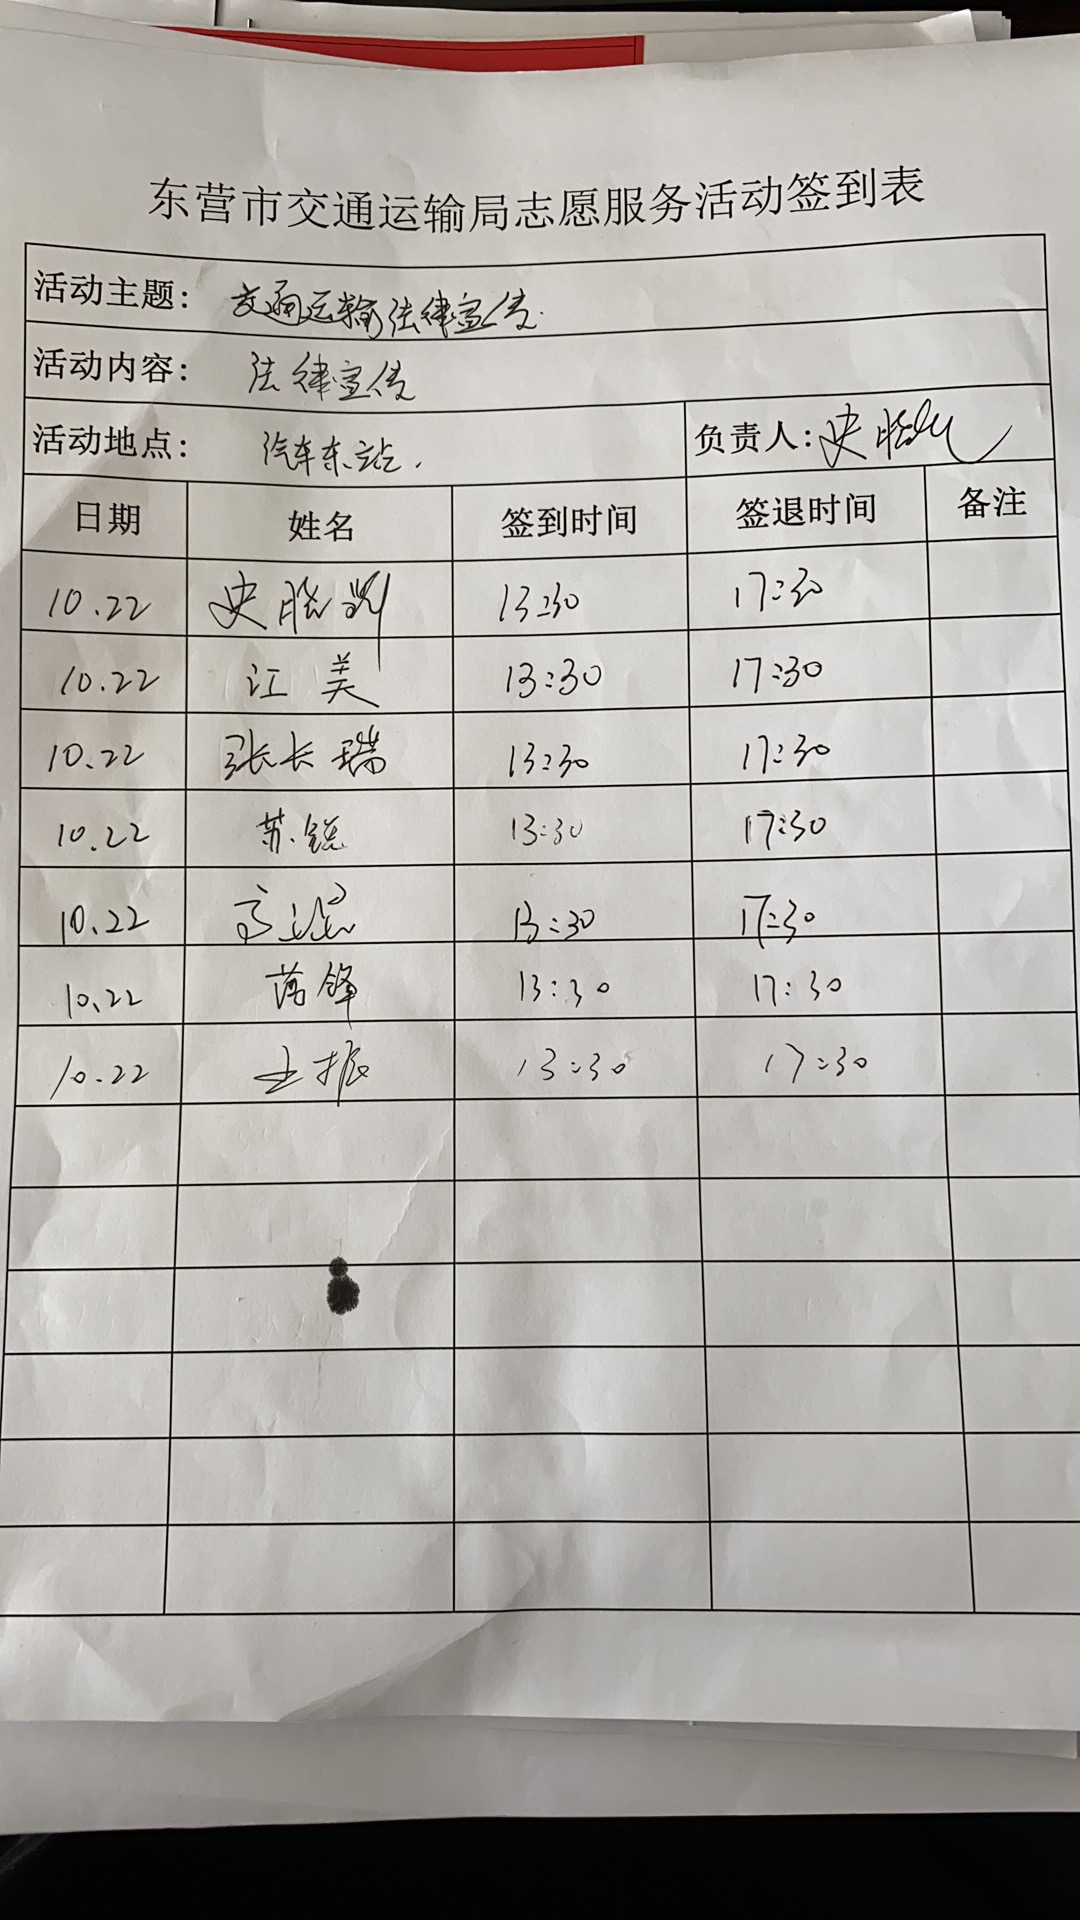 东营市交通运输局志愿服务活动签到表
活动主题: 交通运输法律宣传
活动内容: 法律宣传
活动地点: 汽车东站. 负责人: 史晓
日期 姓名 签到时间 签退时间 备注
10.22 史晓 13:30 17:30
10.22 江美 13:30 17:30
10.22 张长瑞 13:30 17:30
10.22 苏锐 13:30 17:30
10.22 高 13:30 17:30
10.22 锋 13:30 17:30
10.22 王振 13:30 17:30